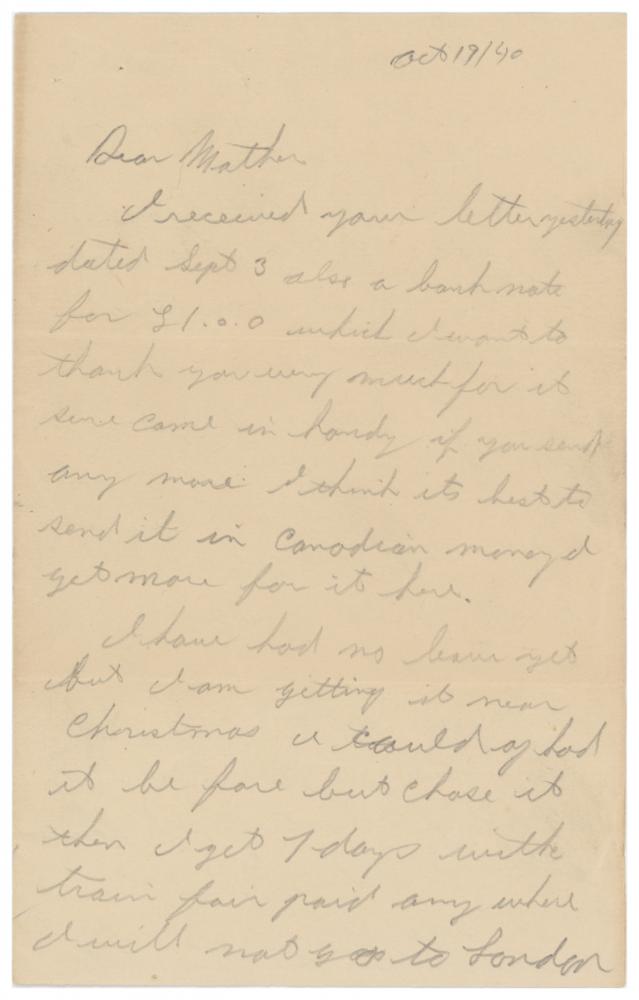 Oct 19/40
Dear Mother
I received your letter yesterday
dated Sept 3 also a bank note
for £1.0.0 which I want to
thank you very much for it
sure came in handy if you send
any more I think its best to
send it in Canadian money I
get more for it here.
I have had no leave yet
but I am getting it near
Christmas I could of had
it be fore but chose it
then I get 7 days with
train fair paid any where
I will not go to London